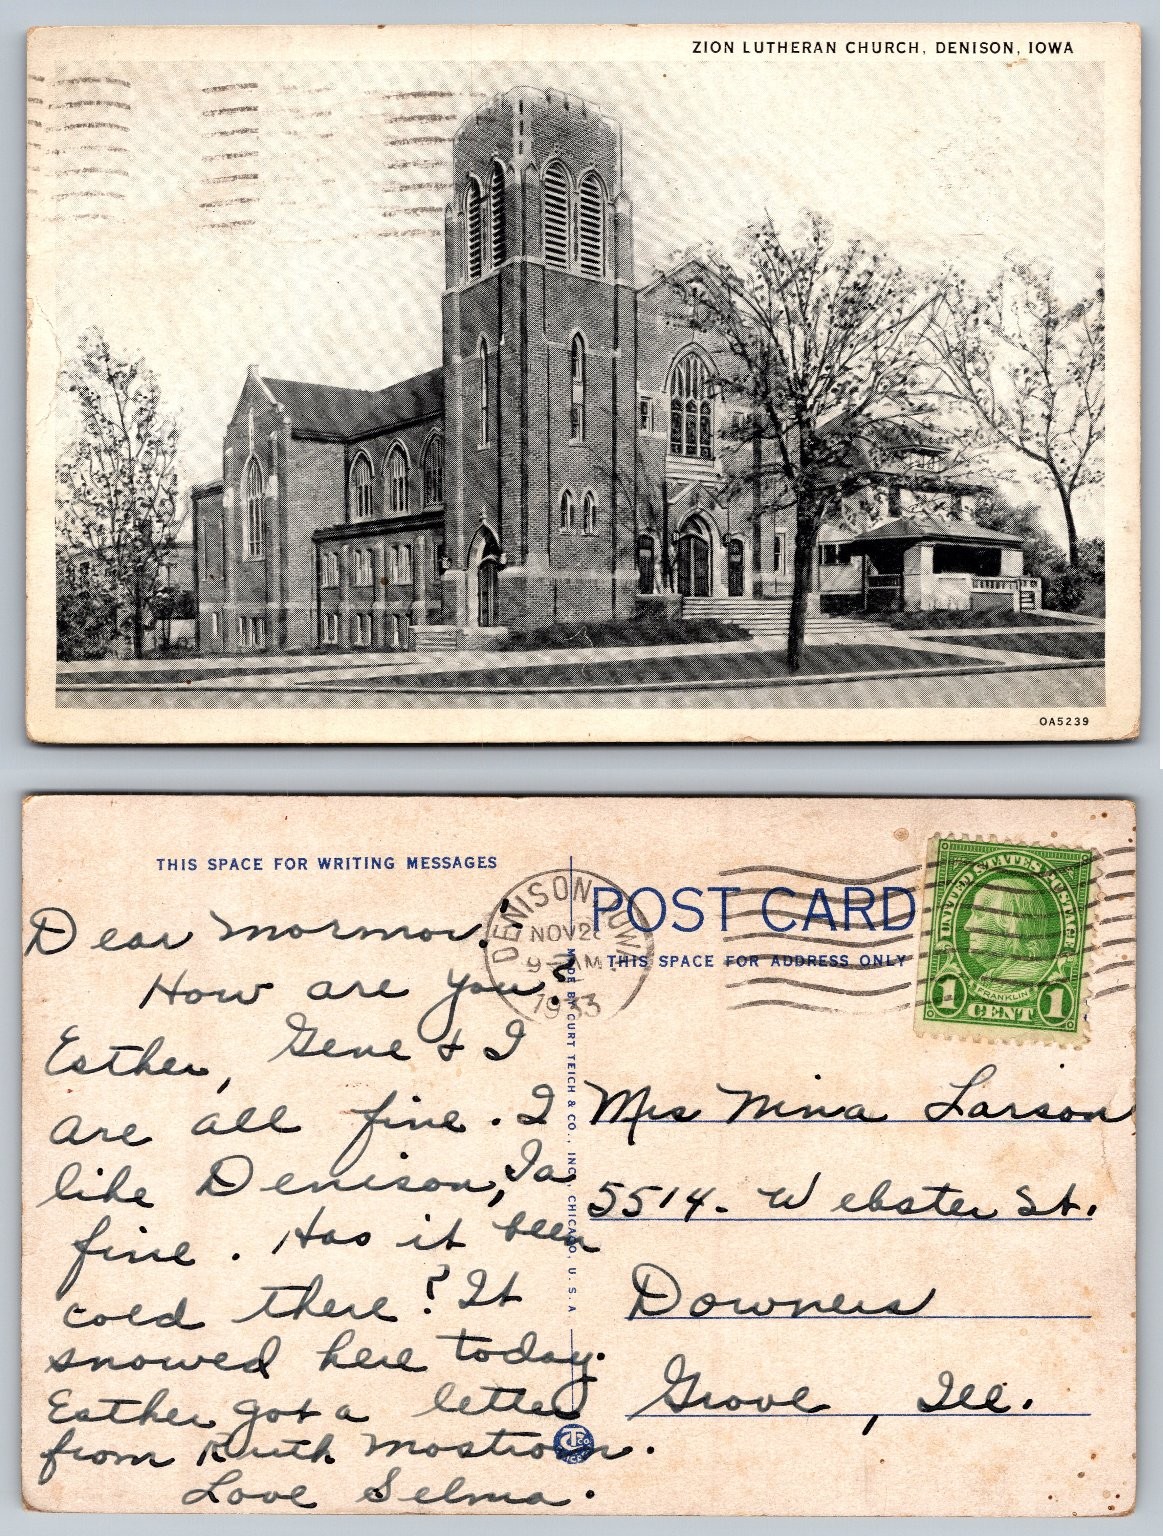 ZION LUTHERAN CHURCH, DENISON, IOWA
OA5239
THIS SPACE FOR WRITING MESSAGES
DENISON IOWA
NOV 28
9 - AM
1933
POST CARD
THIS SPACE FOR ADDRESS ONLY
UNITED STATES POSTAGE
FRANKLIN
1 CENT 1
MADE BY CURT TEICH & CO., INC., CHICAGO, U. S. A
Dear Mormor:
How are you?
Esther, Gene & I
are all fine. I
like Denison, Ia
fine. Has it been
cold there? It
snowed here today.
Esther got a letter
from Ruth Mostrom.
Love Selma.
Mrs Nina Larson
5514- Webster St.
Downers
Grove, Ill.